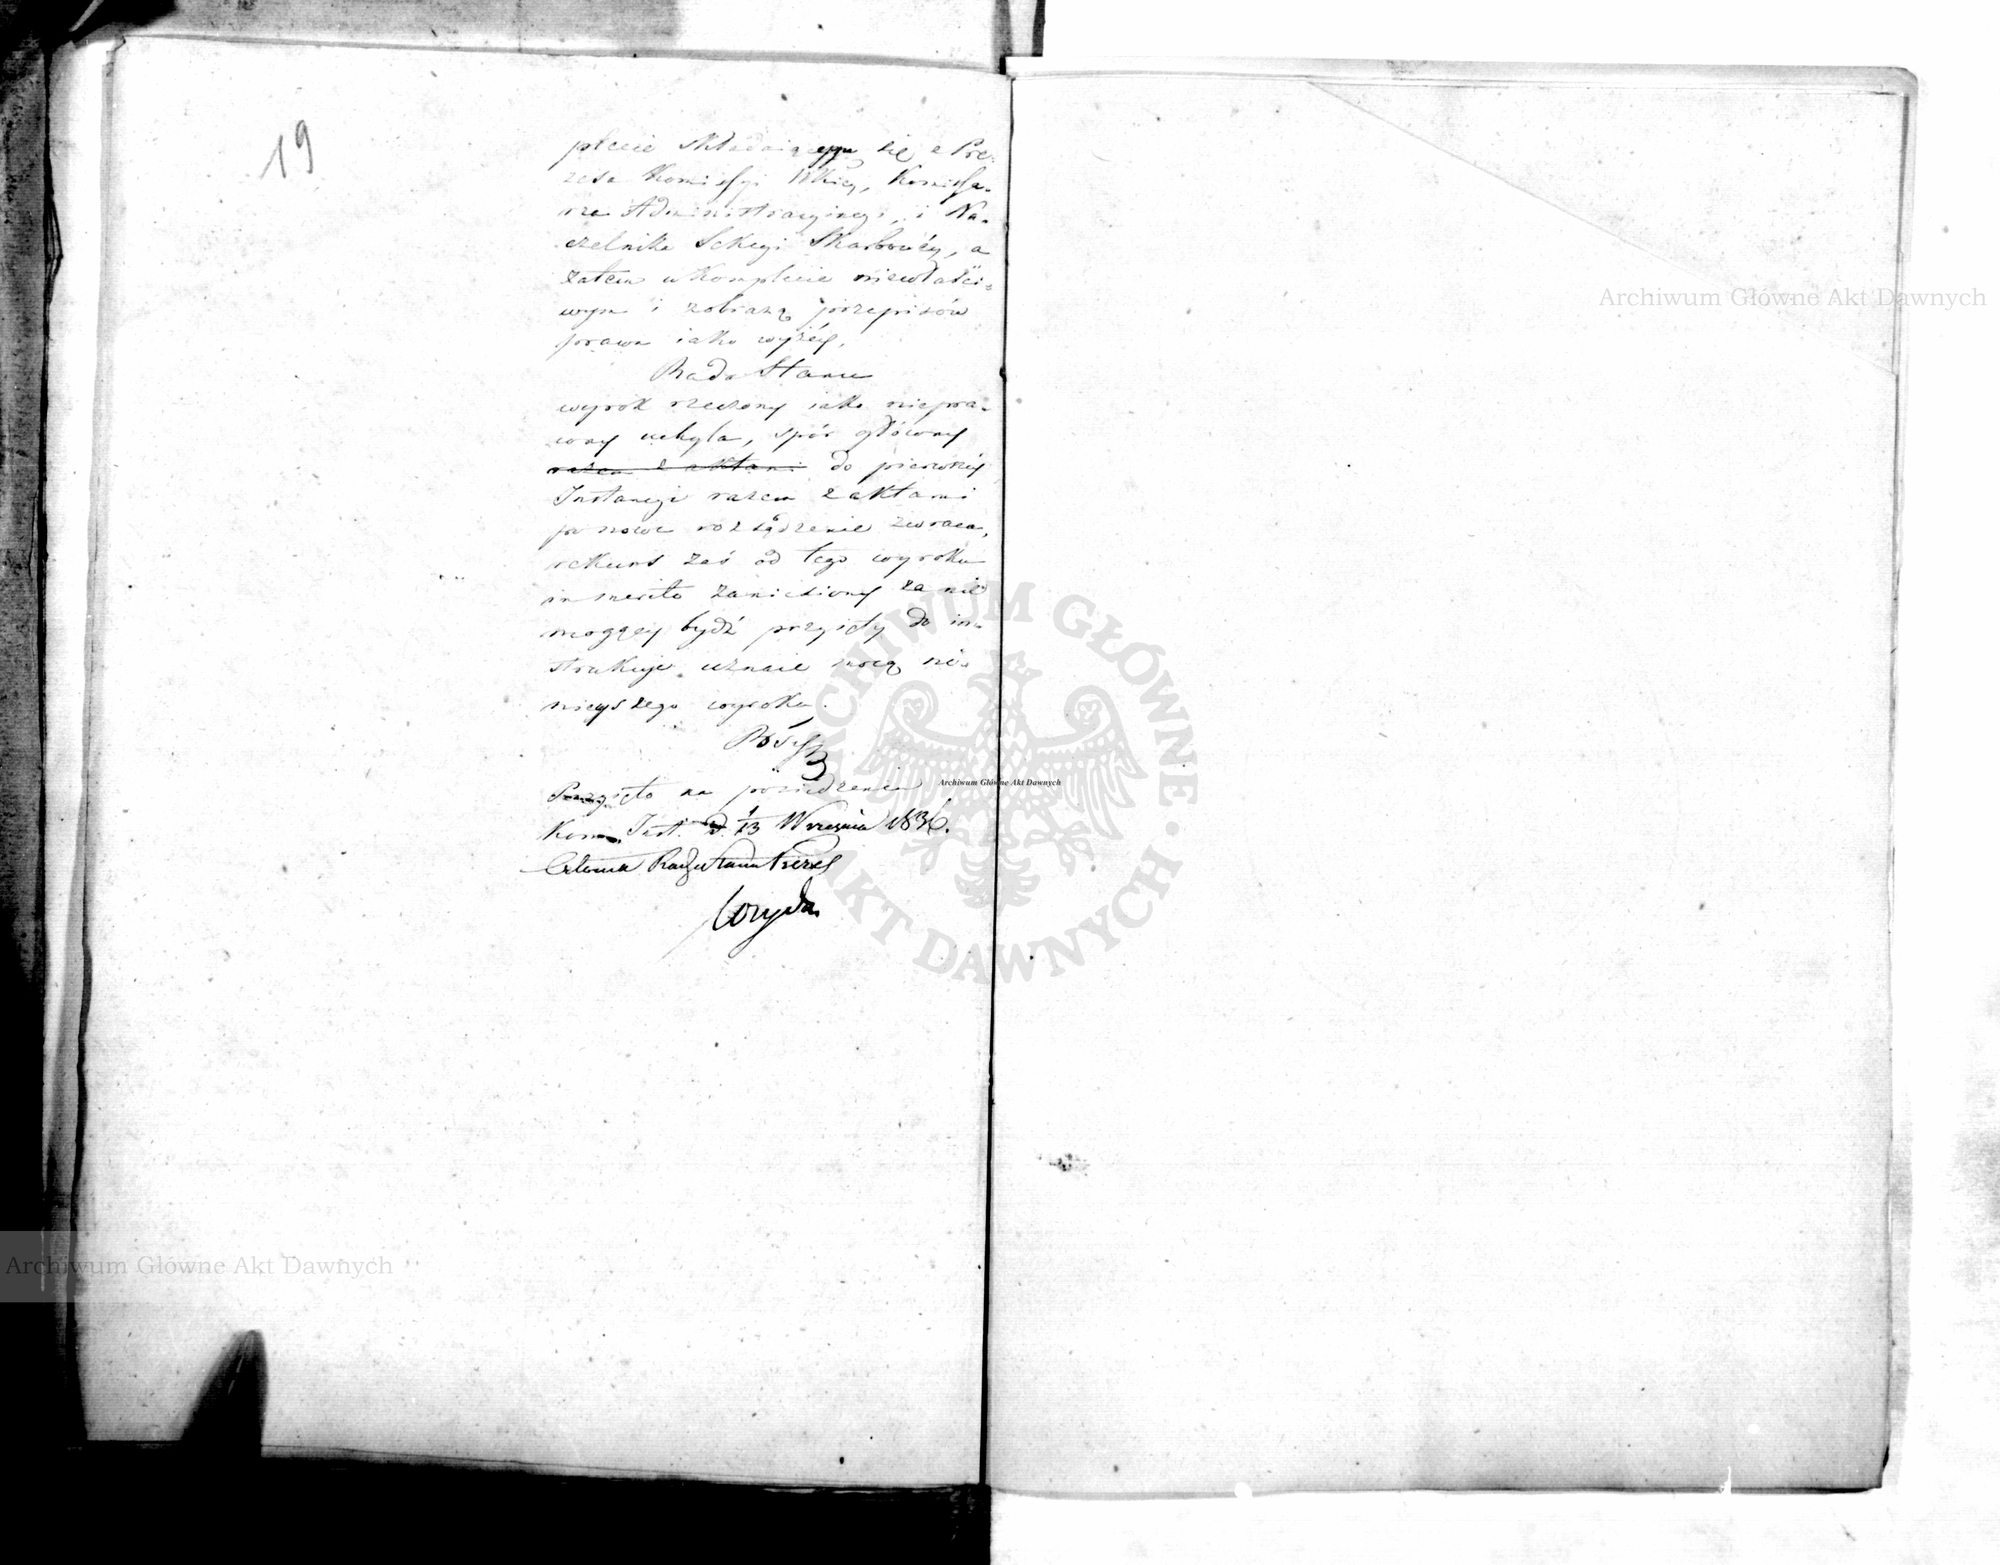 19
plecie składaiącego się z Pre-
zesa Komissyi Wkiey, Komissa-
rza Administracyinego, i Na-
czelnika Sekcyi Skarbowéy, a
zatem w komplecie niewłaści-
wym i z obrazą przepisów
prawa iako wyżéy.
Rada Stanu
wyrok rzeczony iako niepra-
wny uchyla, spór główny
razem z aktami do pierwszéy
Instancyi razem z aktami
po nowe rozsądzenie zwraca,
rekurs zaś od tego wyroku
in merito zaniesiony za nie
mogący bydź przyięty do in-
strukcyi uznaie mocą ni-
nieyszego wyroku.
Przyięto na posiedzeniu
Kom. Inst. d. 1/13 Września 1836.
Członka Rady Stanu Prezes
Archiwum Główne Akt Dawnych
Archiwum Główne Akt Dawnych
Archiwum Główne Akt Dawnych
ARCHIWUM GŁÓWNE AKT DAWNYCH